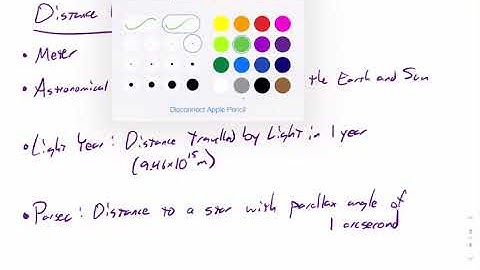 Distance
• Meter
• Astronomical the Earth and Sun
Disconnect Apple Pencil
• Light Year: Distance travelled by Light in 1 year
(9.46×10¹⁵m)
• Parsec: Distance to a star with parallax angle of
1 arcsecond